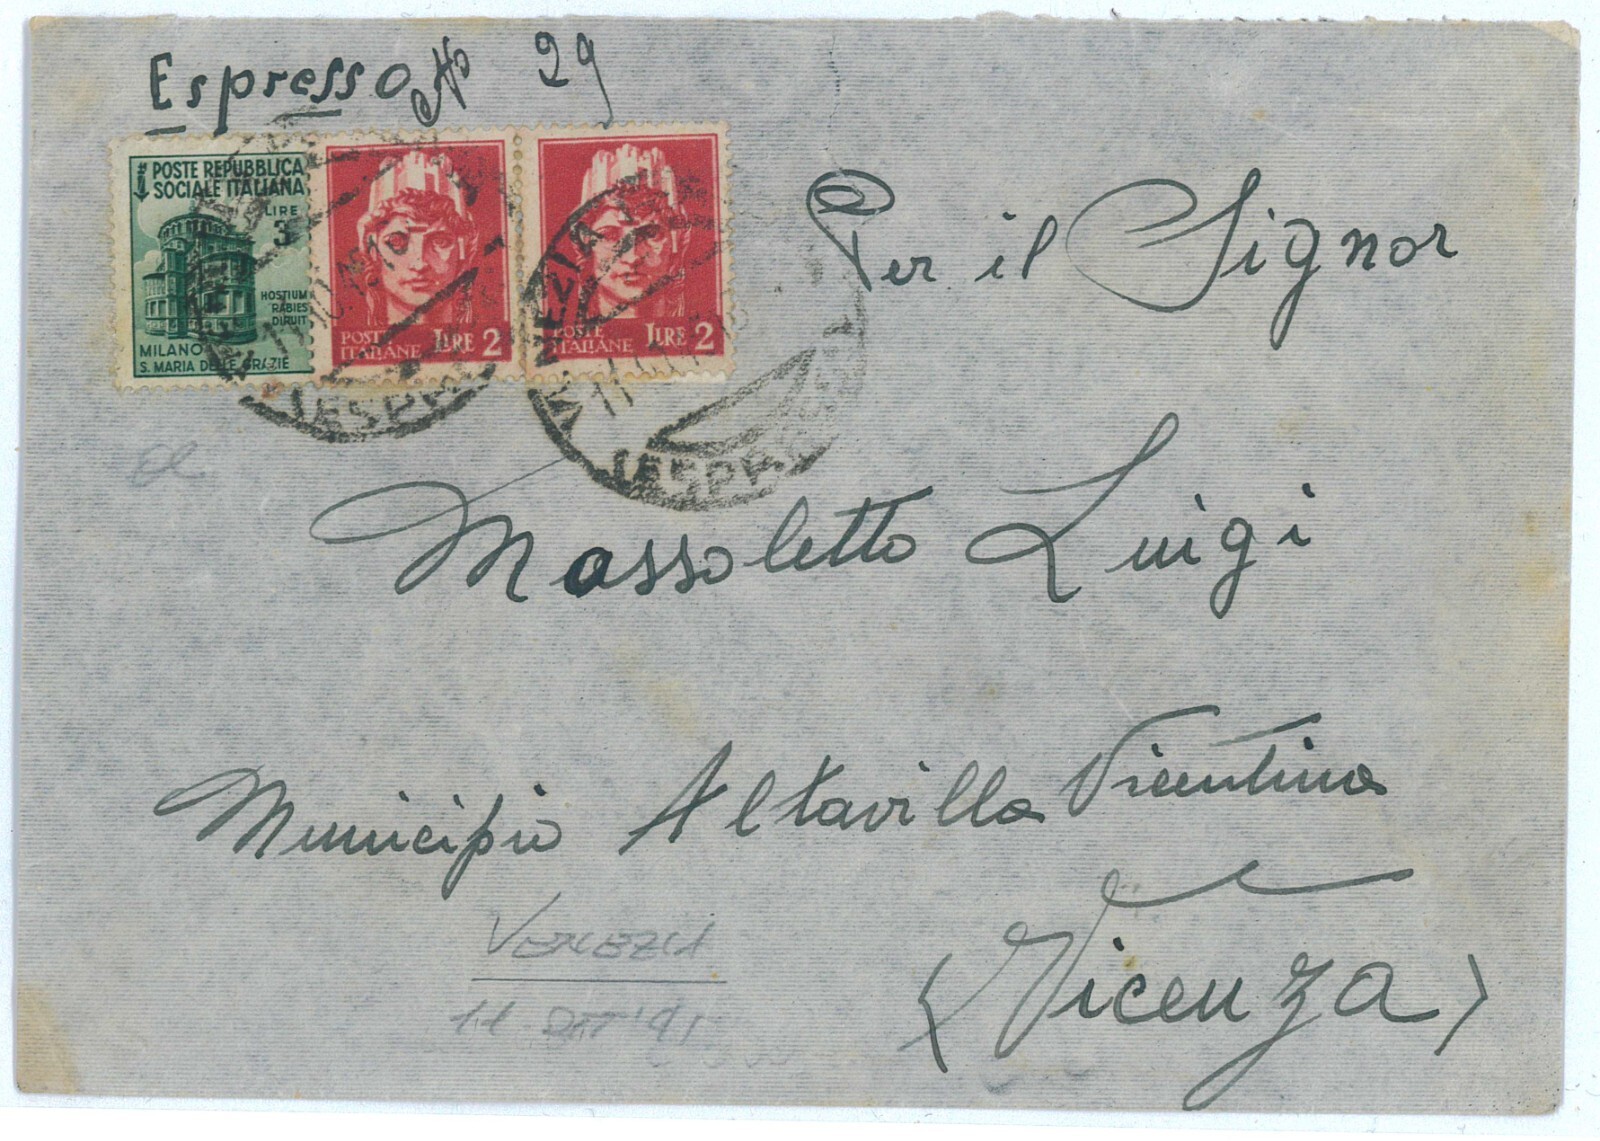 Espresso No 29
POSTE REPUBBLICA
SOCIALE ITALIANA
LIRE
3
HOSTIUM
RABIES
DIRUIT
MILANO
S. MARIA DELLE GRAZIE
POSTE
ITALIANE LIRE 2
POSTE
ITALIANE LIRE 2
VENEZIA
(ESPRESSI)
Per il Signor
Massoletto Luigi
Municipio Altavilla Vicentina
(Vicenza)
VENEZIA
11 OTT '45